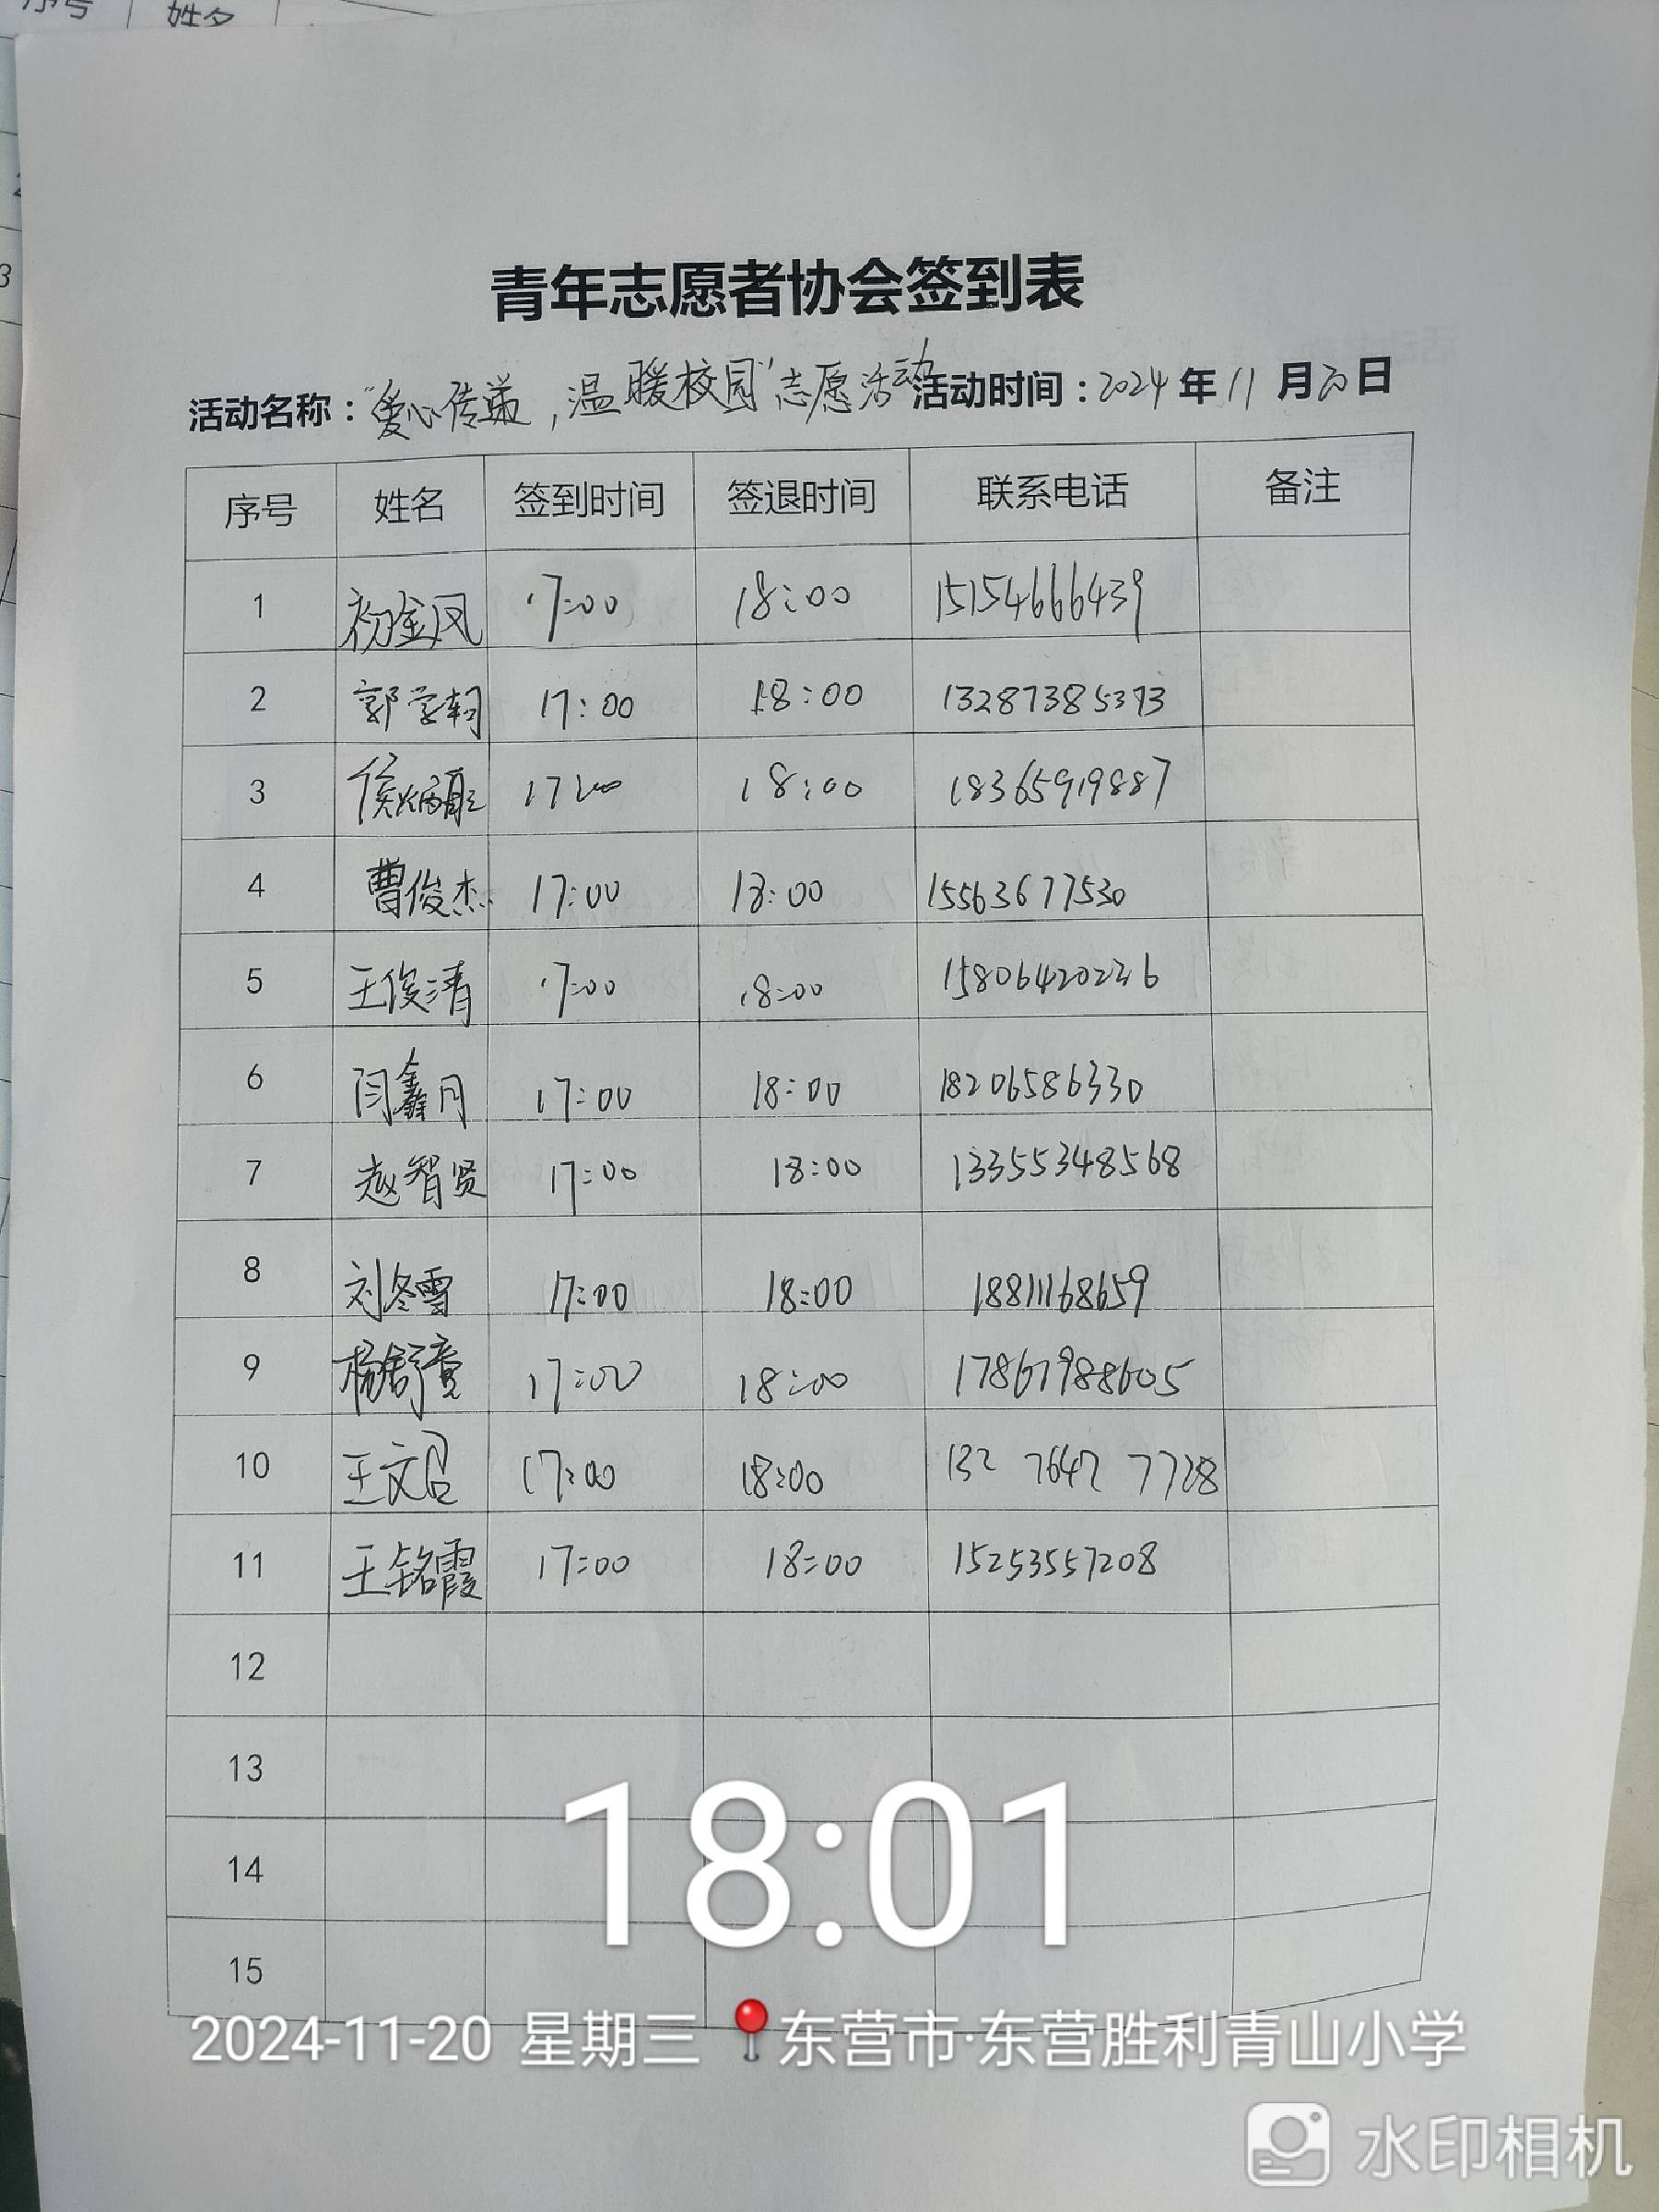 序号 姓名
青年志愿者协会签到表
活动名称：“爱心传递，温暖校园”志愿活动 活动时间：2024年11月20日
序号 姓名 签到时间 签退时间 联系电话 备注
1 初金凤 17:00 18:00 15154666439
2 郭学轲 17:00 18:00 13287385373
3 侯炳 17:00 18:00 18365919887
4 曹俊杰 17:00 18:00 15563677530
5 王俊清 17:00 18:00 15806420236
6 闫鑫月 17:00 18:00 18206586330
7 赵智贤 17:00 18:00 13355348568
8 刘冬雪 17:00 18:00 18811168659
9 杨舒童 17:00 18:00 17867988605
10 王文君 17:00 18:00 132 7647 7728
11 王铭霞 17:00 18:00 15253557208
12
13
14
15
18:01
2024-11-20 星期三 东营市·东营胜利青山小学
水印相机